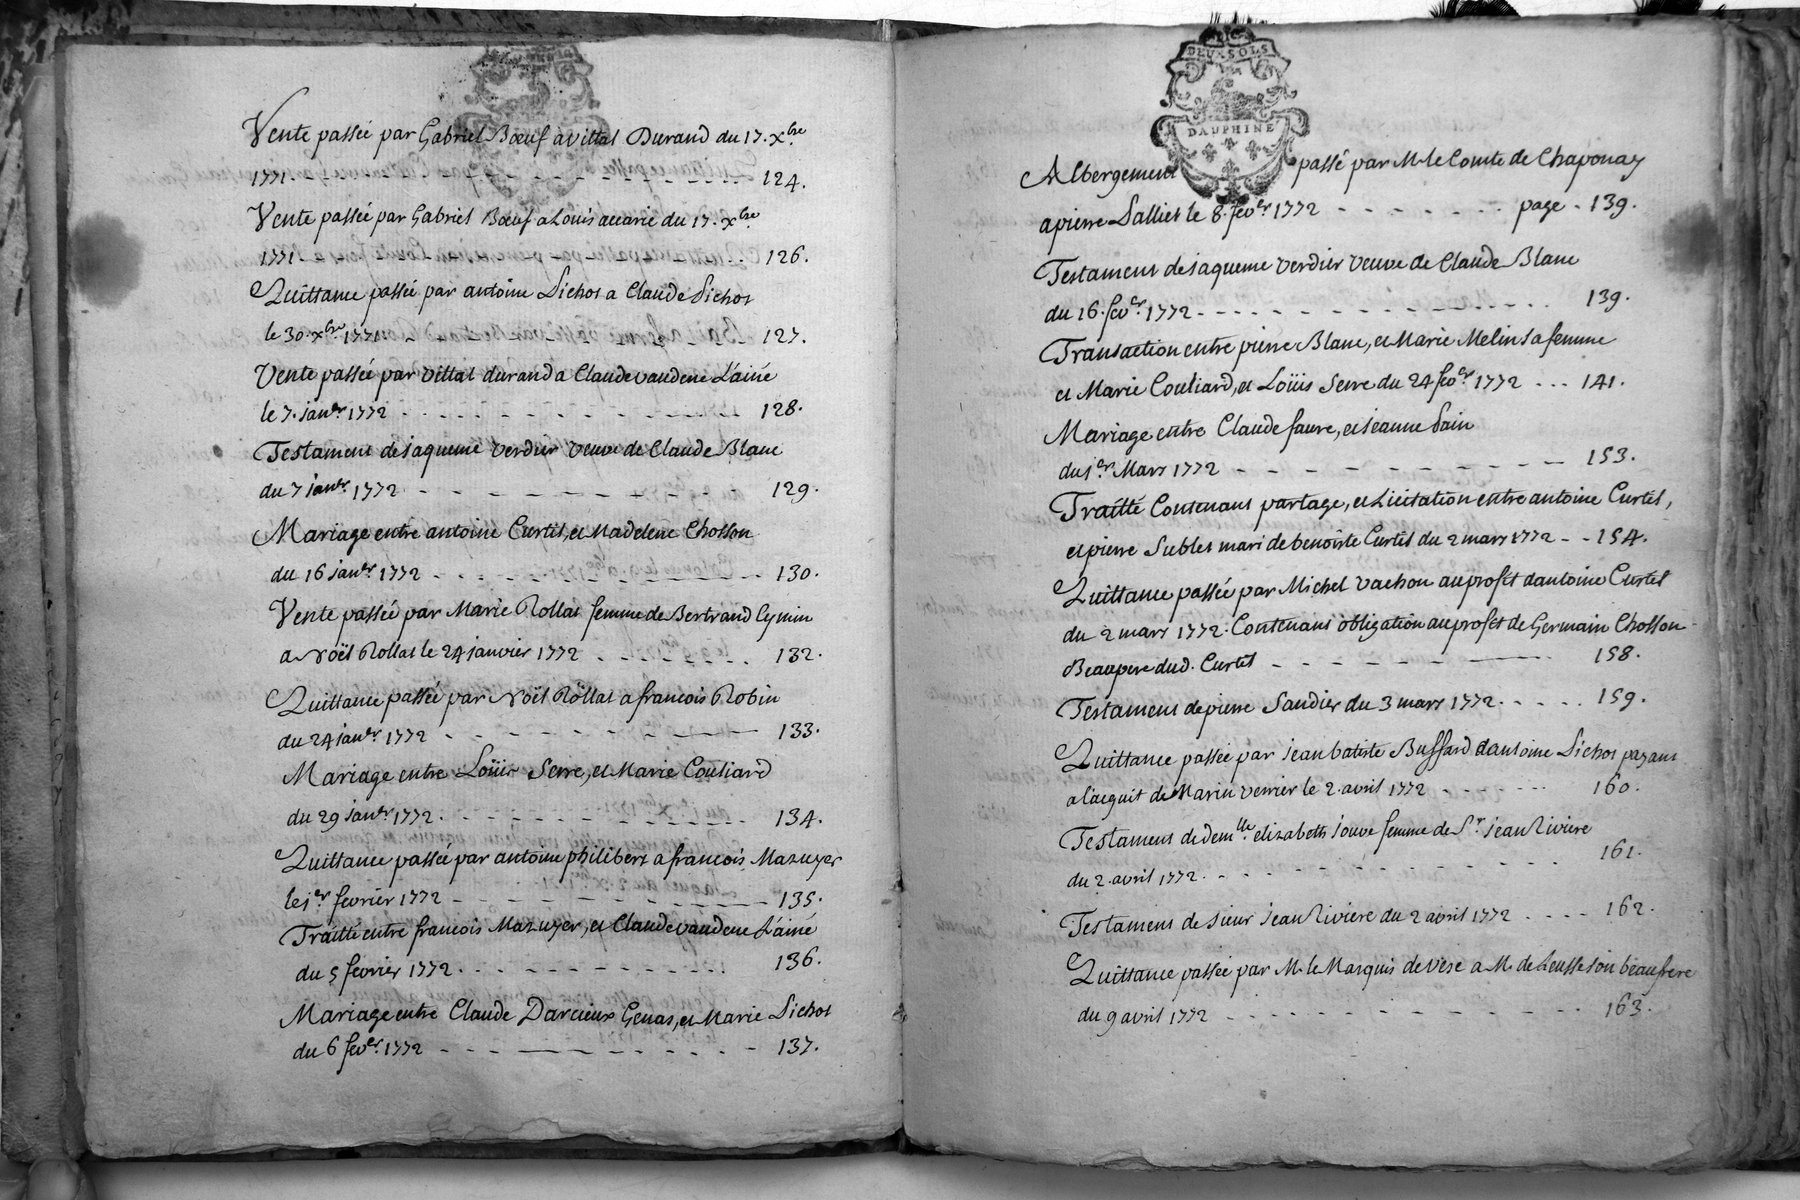 Vente passée par Gabriel Bœuf a vittal Durand du 17. Xbre.
1771. 124.
Vente passée par Gabriel Bœuf a Louis du 17. Xbre.
1771. 126.
Quittance passée par antoine Lichot a Claude Lichot
le 30. xbre 1771. 127.
Vente passée par vittal durand a Claude vaudene L'ainé
le 7. janvr. 1772 128.
Testament de jaqueme verdier veuve de Claude Blanc
du 7 janvr. 1772 129.
Mariage entre antoine Curtil, et Madelene Chosson
du 16 janvr. 1772 130.
Vente passée par Marie Rollat femme de Bertrand Eymin
a Noël Rollat le 24 janvier 1772 132.
Quittance passée par Noël Rollat a francois Robin
du 24 janvr. 1772 133.
Mariage entre Loüis Serre, et Marie Couliard
du 29 janvr. 1772. 134.
Quittance passée par antoine philibert a francois Mazuyer
le 1er fevrier 1772 135.
Traitté entre francois Mazuyer, et Claude vaudene L'ainé
du 5 fevrier 1772. 136.
Mariage entre Claude Darcieux Genas, et Marie Lichot
du 6 fever. 1772 137.
DEUX SOLS
DAUPHINE
Albergement passé par M. le Comte de Chaponay
a pierre Lalliet le 8. fever. 1772 page. 139.
Testament de jaqueme verdier veuve de Claude Blanc
du 16. fever. 1772 139.
Transaction entre pierre Blanc, et Marie Melin sa femme
et Marie Couliard, et Loüis Serre du 24 fever. 1772 141.
Mariage entre Claude faure, et jeanne Pain
du 1er Mars 1772 153.
Traitté Contenant partage, et Licitation entre antoine Curtil,
et pierre Sublet mari de benoiste Curtil du 2 mars 1772 154.
Quittance passée par Michel vachon au profit d'antoine Curtil
du 2 mars 1772. Contenant obligation au profit de Germain Chosson
Beaupere dud. Curtil 158.
Testament de pierre Saudier du 3 mars 1772. 159.
Quittance passée par jean batiste Buffard d'antoine Lichot payant
a l'acquit de Marin verrier le 2. avril 1772 160.
Testament de demlle. elizabeth jouve femme de Sr. jean Riviere
du 2. avril 1772. 161.
Testament de sieur jean Riviere du 2 avril 1772 162.
Quittance passée par M. le Marquis de vese a M. de Leusse son beaufrere
du 9 avril 1772 163.